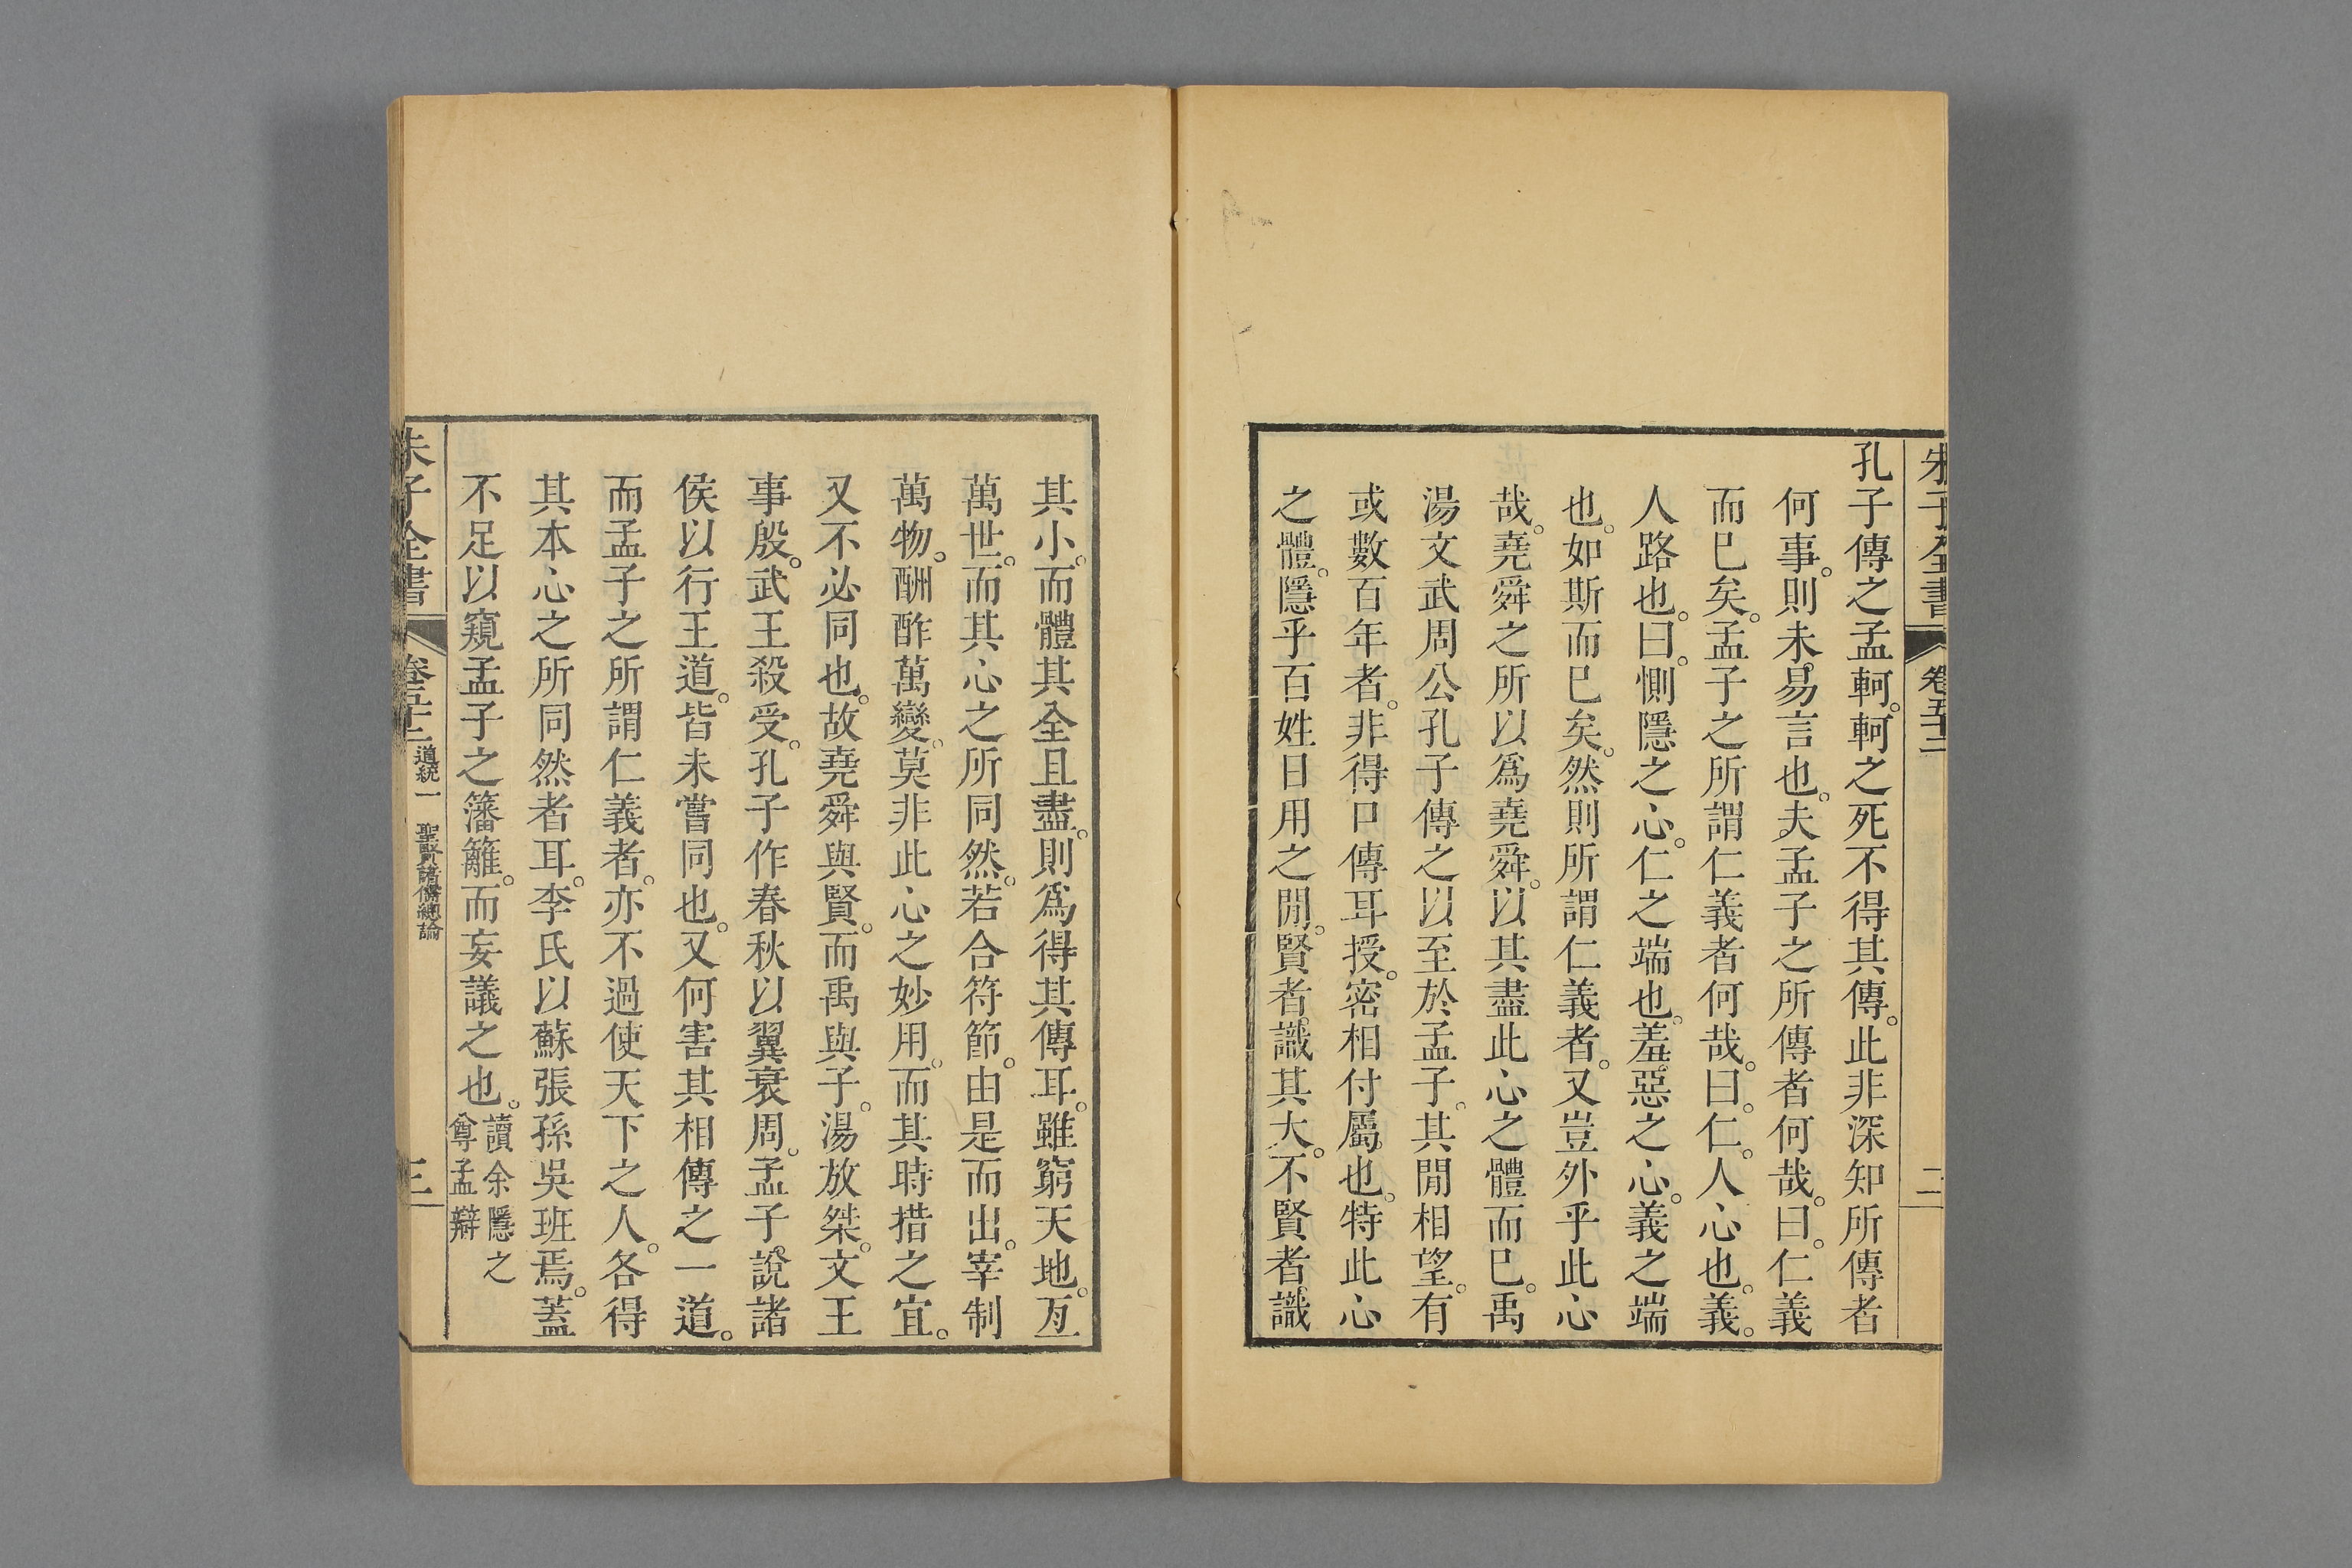 朱子全書 卷五十二 二
孔子傳之孟軻。軻之死不得其傳。此非深知所傳者
何事。則未易言也。夫孟子之所傳者何哉。曰。仁義
而已矣。孟子之所謂仁義者何哉。曰。仁。人心也。義。
人路也。曰。惻隱之心。仁之端也。羞惡之心。義之端
也。如斯而已矣。然則所謂仁義者。又豈外乎此心
哉。堯舜之所以爲堯舜。以其盡此心之體而已。禹
湯文武周公孔子傳之以至於孟子。其閒相望。有
或數百年者。非得口傳耳授。密相付屬也。特此心
之體。隱乎百姓日用之閒。賢者識其大。不賢者識
其小。而體其全且盡。則爲得其傳耳。雖窮天地。亙
萬世。而其心之所同然。若合符節。由是而出。宰制
萬物。酬酢萬變。莫非此心之妙用。而其時措之宜。
又不必同也。故堯舜與賢。而禹與子。湯放桀。文王
事殷。武王殺受。孔子作春秋以翼衰周。孟子說諸
侯以行王道。皆未嘗同也。又何害其相傳之一道。
而孟子之所謂仁義者。亦不過使天下之人。各得
其本心之所同然者耳。李氏以蘇張孫吳班焉。蓋
不足以窺孟子之籓籬。而妄議之也。讀余隱之
尊孟辯
朱子全書 卷五十二 道統一 聖賢諸儒總論 三